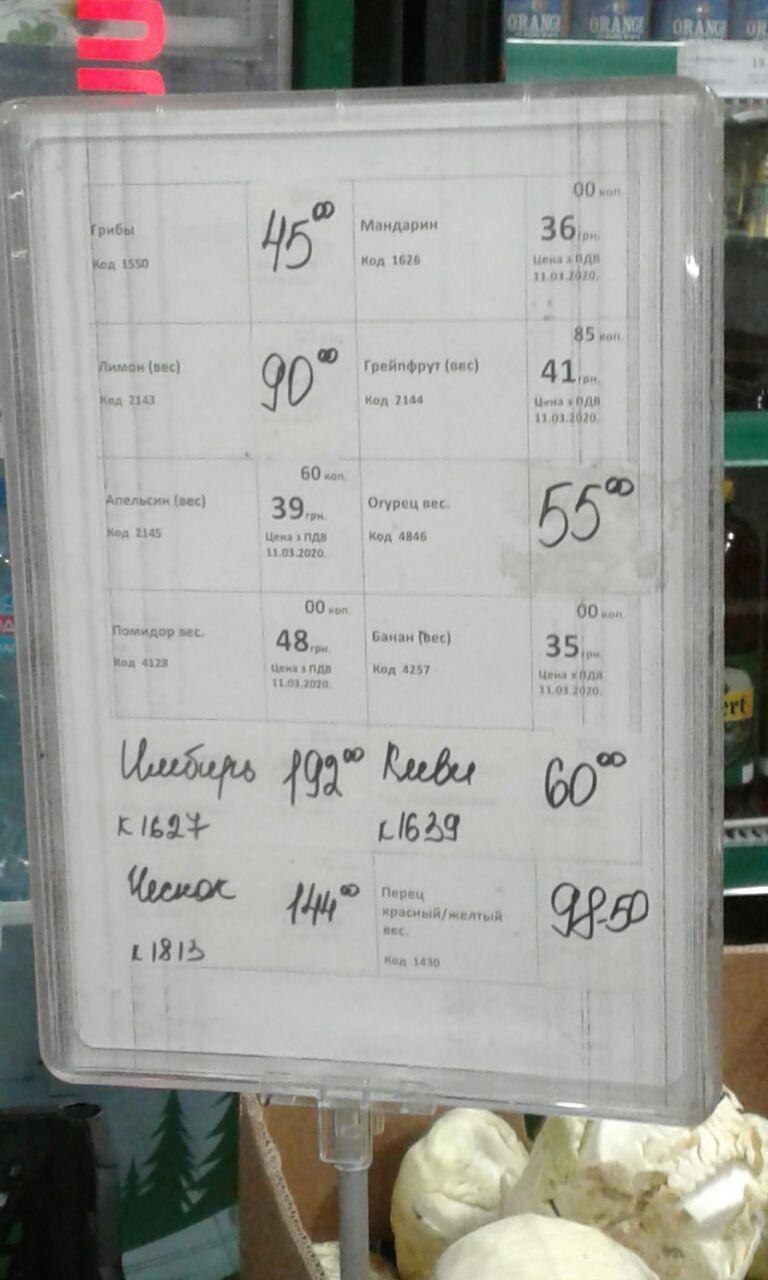 ORANGE ORANGE ORANGE OR
19.
Грибы
Код 1550
45⁰⁰
Мандарин
Код 1626
00 коп.
36 грн.
Цена з ПДВ
11.03.2020.
Лимон (вес)
Код 2143
90⁰⁰
Грейпфрут (вес)
Код 2144
85 коп.
41 грн.
Цена з ПДВ
11.03.2020.
Апельсин (вес)
Код 2145
60 коп.
39 грн.
Цена з ПДВ
11.03.2020.
Огурец вес.
Код 4846
55⁰⁰
Помидор вес.
Код 4128
00 коп.
48 грн.
Цена з ПДВ
11.03.2020.
Банан (вес)
Код 4257
00 коп.
35 грн.
Цена з ПДВ
11.03.2020.
Имбирь
к 1627
192⁰⁰
Киви
к1639
60⁰⁰
Чеснок
к 1813
144⁰⁰
Перец
красный/желтый
вес.
Код 1430
98-50
ert